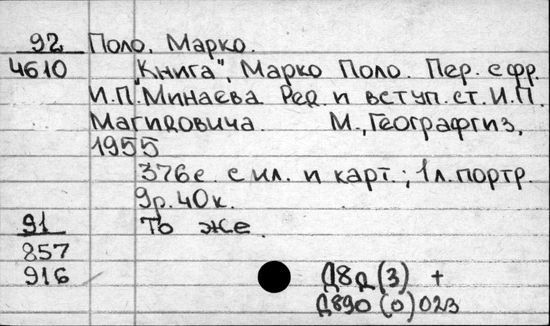 92 Поло, Марко.
4610 "Книга", Марко Поло. Пер. с фр.
И.П. Минаева. Ред. и вступ. ст. И.П.
Магидовича. М., Географгиз,
1955
376с. с ил. и карт.; 1 л. портр.
9р. 40к.
91 То же.
857
916 Д8д(3) +
Д890(0)023